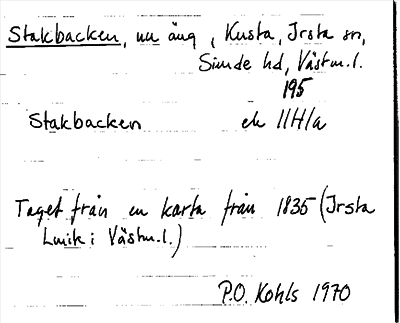 Stakbacken, nu äng, Kusta, Irsta sn,
Siende hd, Västm. l.
195
Stakbacken ek 11H/a
Taget från en karta från 1835 (Irsta
Lmk i Västm. l.)
P.O. Kohls 1970